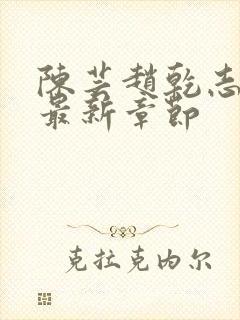 陳芸趙乾志
最新章節
克拉克内尔